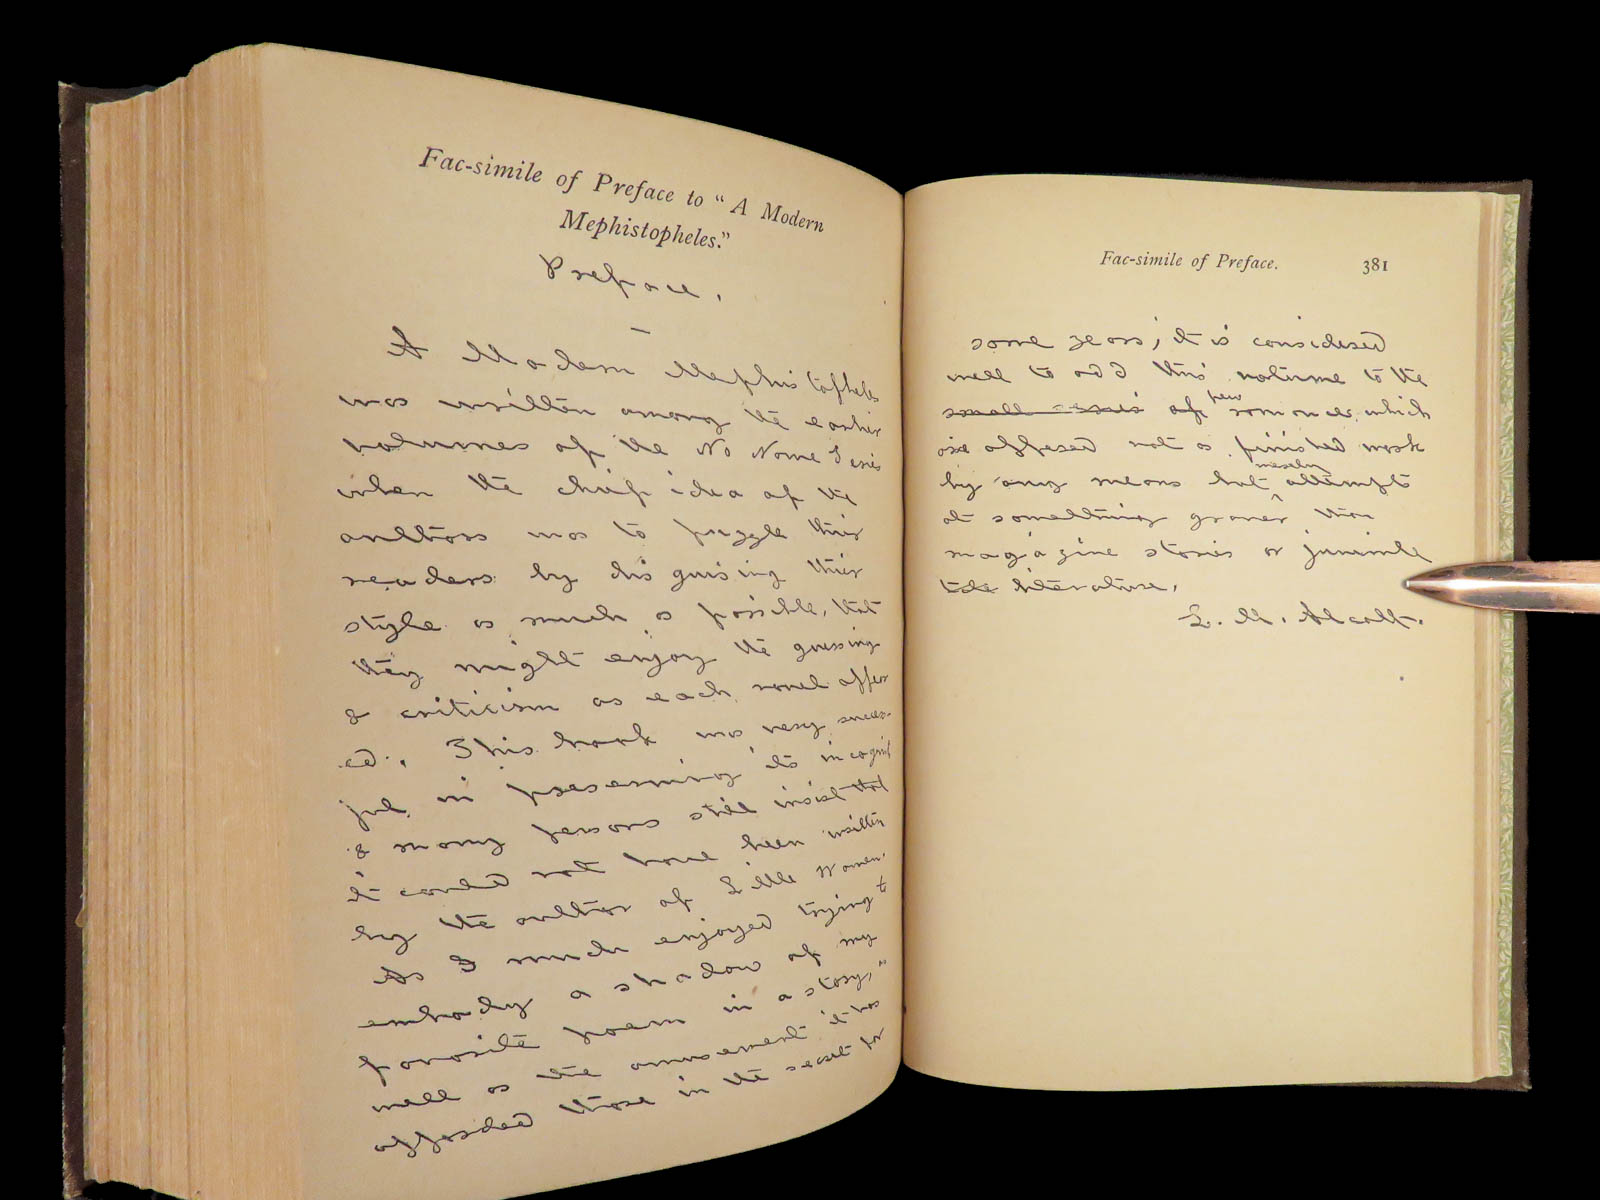 Fac-simile of Preface to “A Modern
Mephistopheles.”
Preface.
A Modern Mephistopheles
was written among the earlier
volumes of the No Name Series
when the chief idea of the
authors was to puzzle their
readers by disguising their
style as much as possible, that
they might enjoy the guessing
& criticism as each novel appear
ed. This book was very success-
ful in preserving its incognito
& many persons still insist that
it could not have been written
by the author of Little Women.
As I much enjoyed trying to
embody a shadow of my
favorite poem in a story,
well as the amusement it has
afforded those in the secret for
Fac-simile of Preface. 381
some years, it is considered
well to add this volume to the
small series of few romances which
are offered not as finished work
by any means but merely attempts
at something graver than
magazine stories or juvenile
tale literature.
L. M. Alcott.